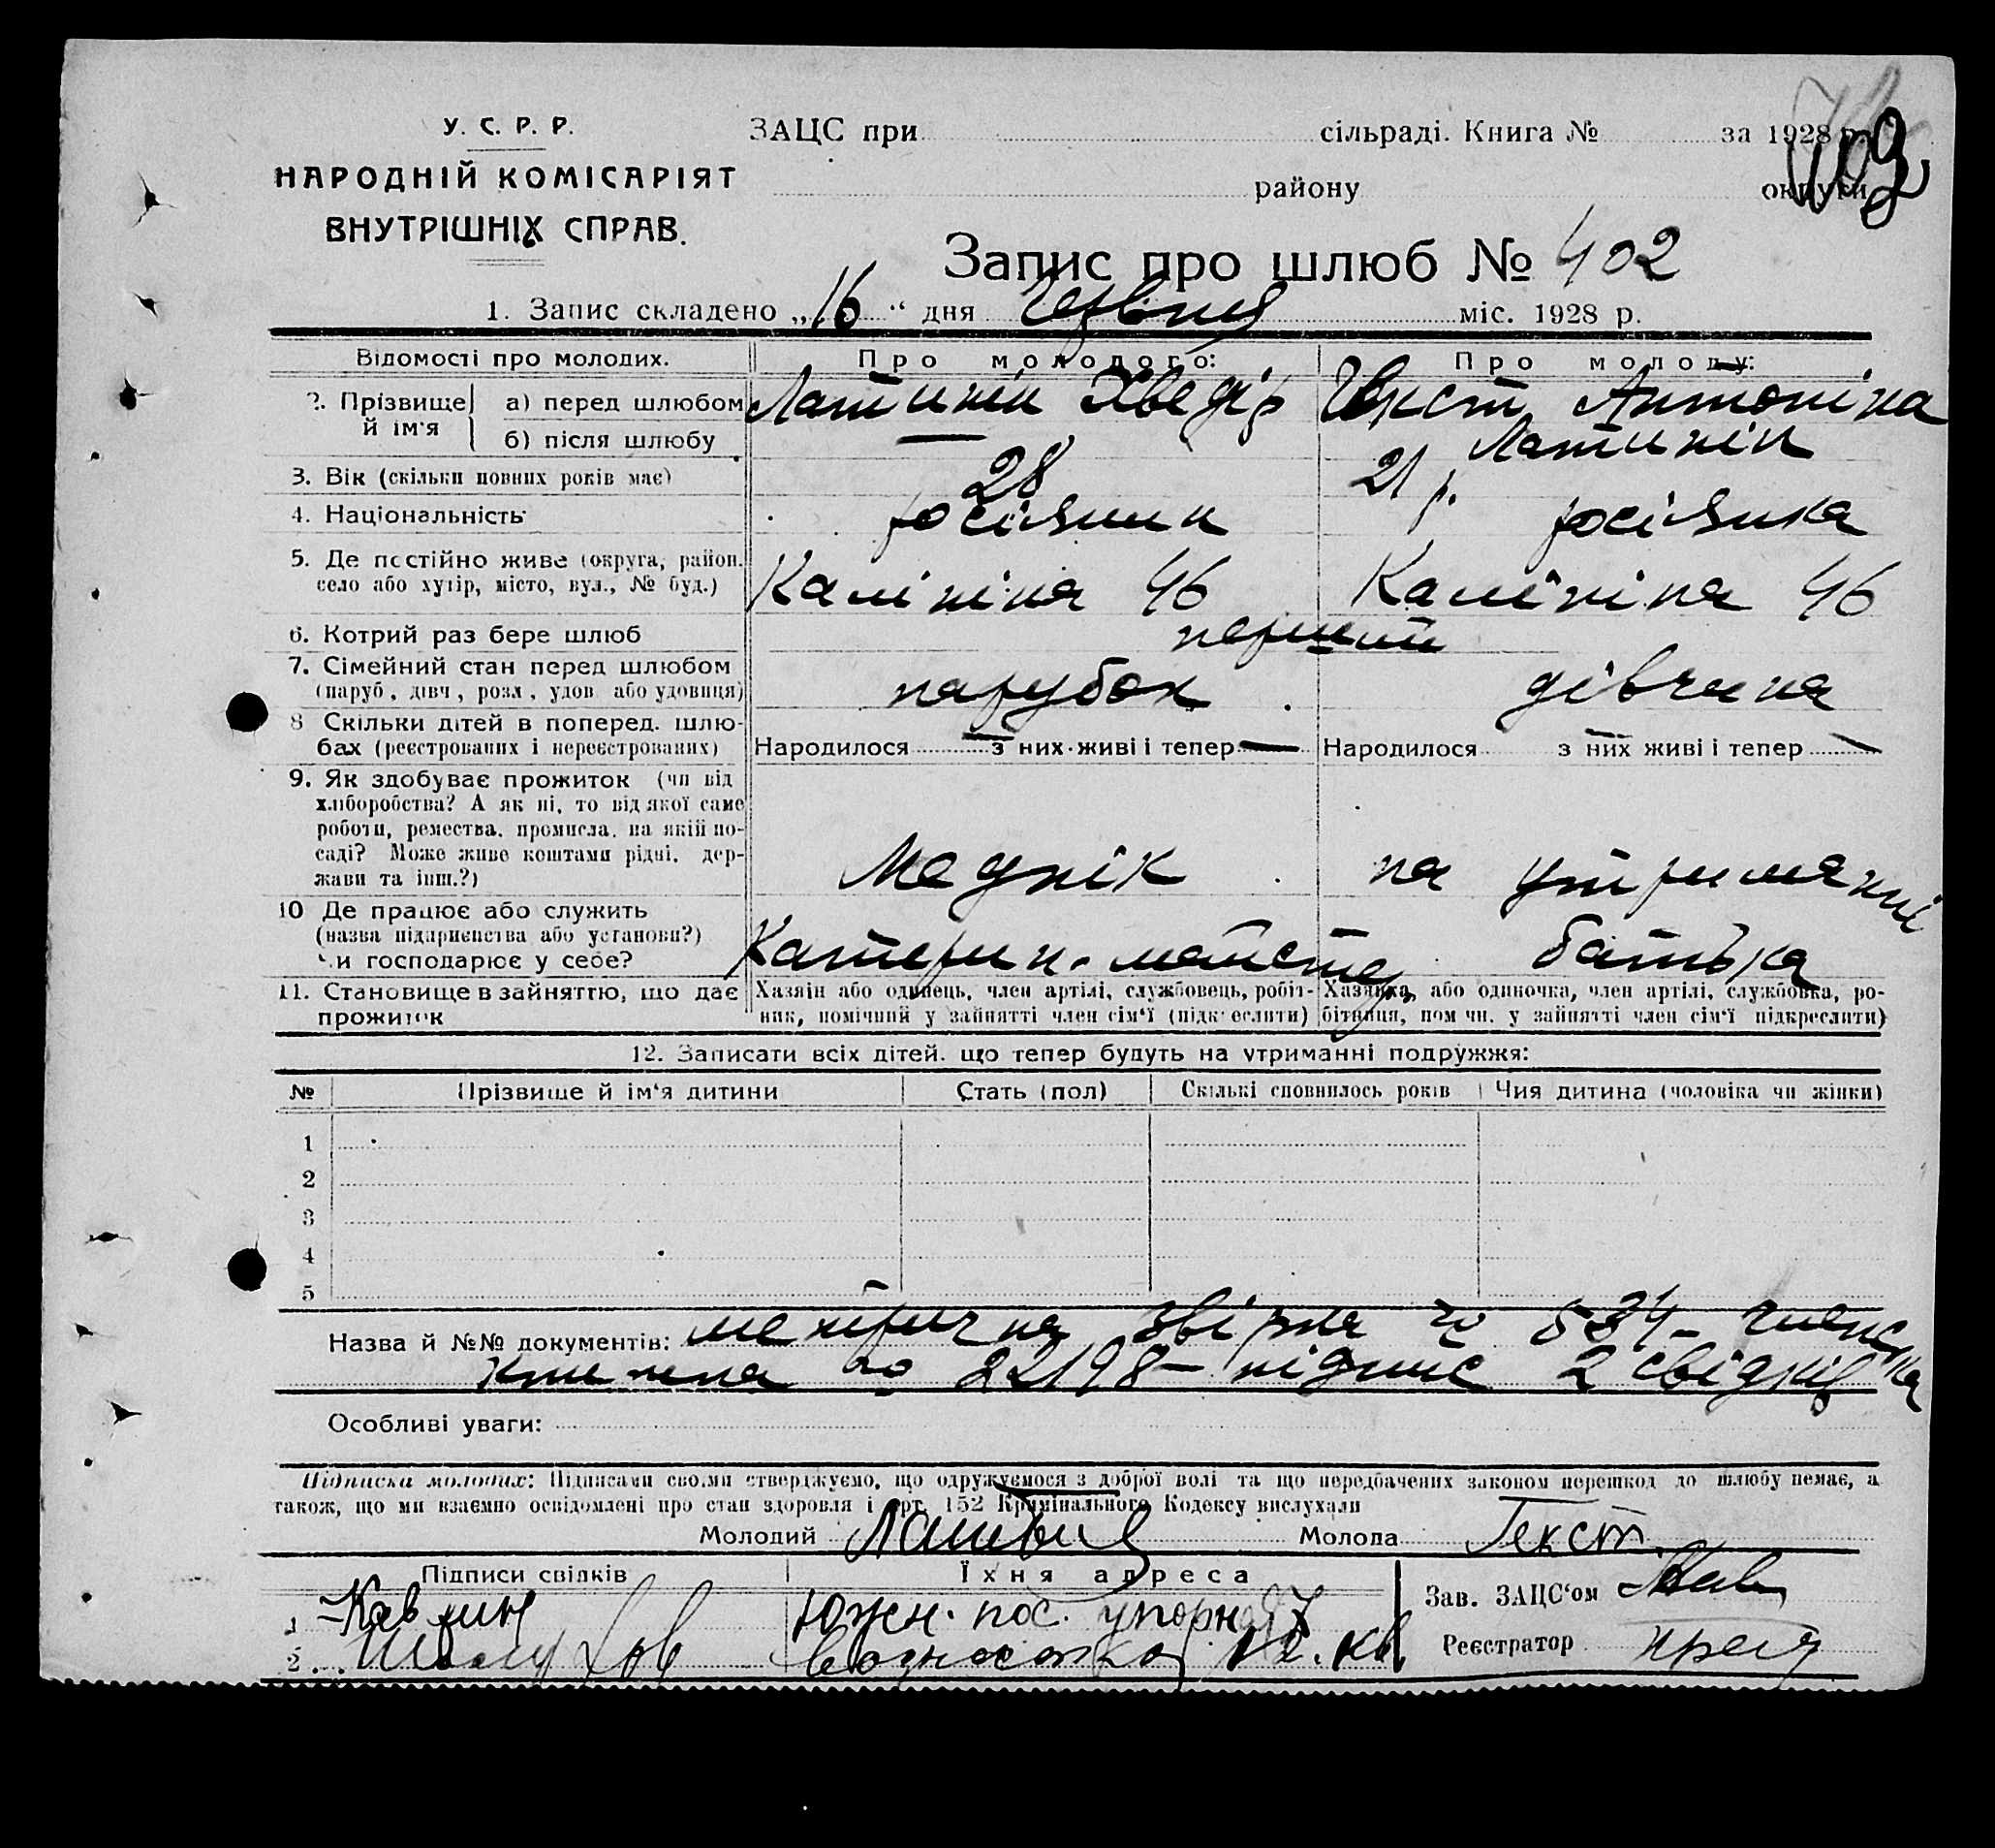 У. С. Р. Р.
НАРОДНІЙ КОМІСАРІЯТ
ВНУТРІШНІХ СПРАВ.
ЗАЦС при сільраді. Книга № за 1928 р.
району округи
Запис про шлюб № 402
1. Запис складено „16“ дня Червня міс. 1928 р.
Відомості про молодих. Про молодого: Про молоду:
2. Прізвище й ім'я а) перед шлюбом Латинін Хведір Текст Антоніна
б) після шлюбу — Латинін
3. Вік (скільки повних років має) 28 21 р.
4. Національність росіянин росіянка
5. Де постійно живе (округа, район, село або хутір, місто, вул., № буд.) Калініна 46 Калініна 46
6. Котрий раз бере шлюб перший
7. Сімейний стан перед шлюбом (паруб., дівч., розл., удов. або удовиця) парубок дівчина
8 Скільки дітей в поперед. шлюбах (реєстрованих і нереєстрованих) Народилося — з них живі і тепер — Народилося — з них живі і тепер —
9. Як здобуває прожиток (чи від хліборобства? А як ні, то від якої саме роботи, ремества, промисла, на якій посаді? Може живе коштами рідні, держави та інш.?) Меднік на утриманні
10 Де працює або служить (назва підприємства або установи?) Чи господарює у себе? Катерин. майстер. батька
11. Становище в зайняттю, що дає прожиток Хазяїн або одинець, член артілі, службовець, робітник, помічний у зайнятті член сім'ї (підкреслити) Хазяйка, або одиночка, член артілі, службовка, робітниця, помічн. у зайнятті член сім'ї підкреслити)
12. Записати всіх дітей, що тепер будуть на утриманні подружжя:
№ Прізвище й ім'я дитини Стать (пол) Скількі сповнилось років Чия дитина (чоловіка чи жінки)
1
2
3
4
5
Назва й №№ документів: метрична звірка № 534 – членська
книжка № 82198 – підпис 2 свідків
Особливі уваги:
Підписка молодих: Підписами своїми стверджуємо, що одружуємося з доброї волі та що передбачених законом перешкод до шлюбу немає, а
також, що ми взаємно освідомлені про стан здоровля і арт. 152 Кримінального Кодексу вислухали
Молодий Молода Текст
Підписи свідків Їхня адреса
Зав. ЗАЦС'ом
1 Южн. пос.
2
Реєстратор